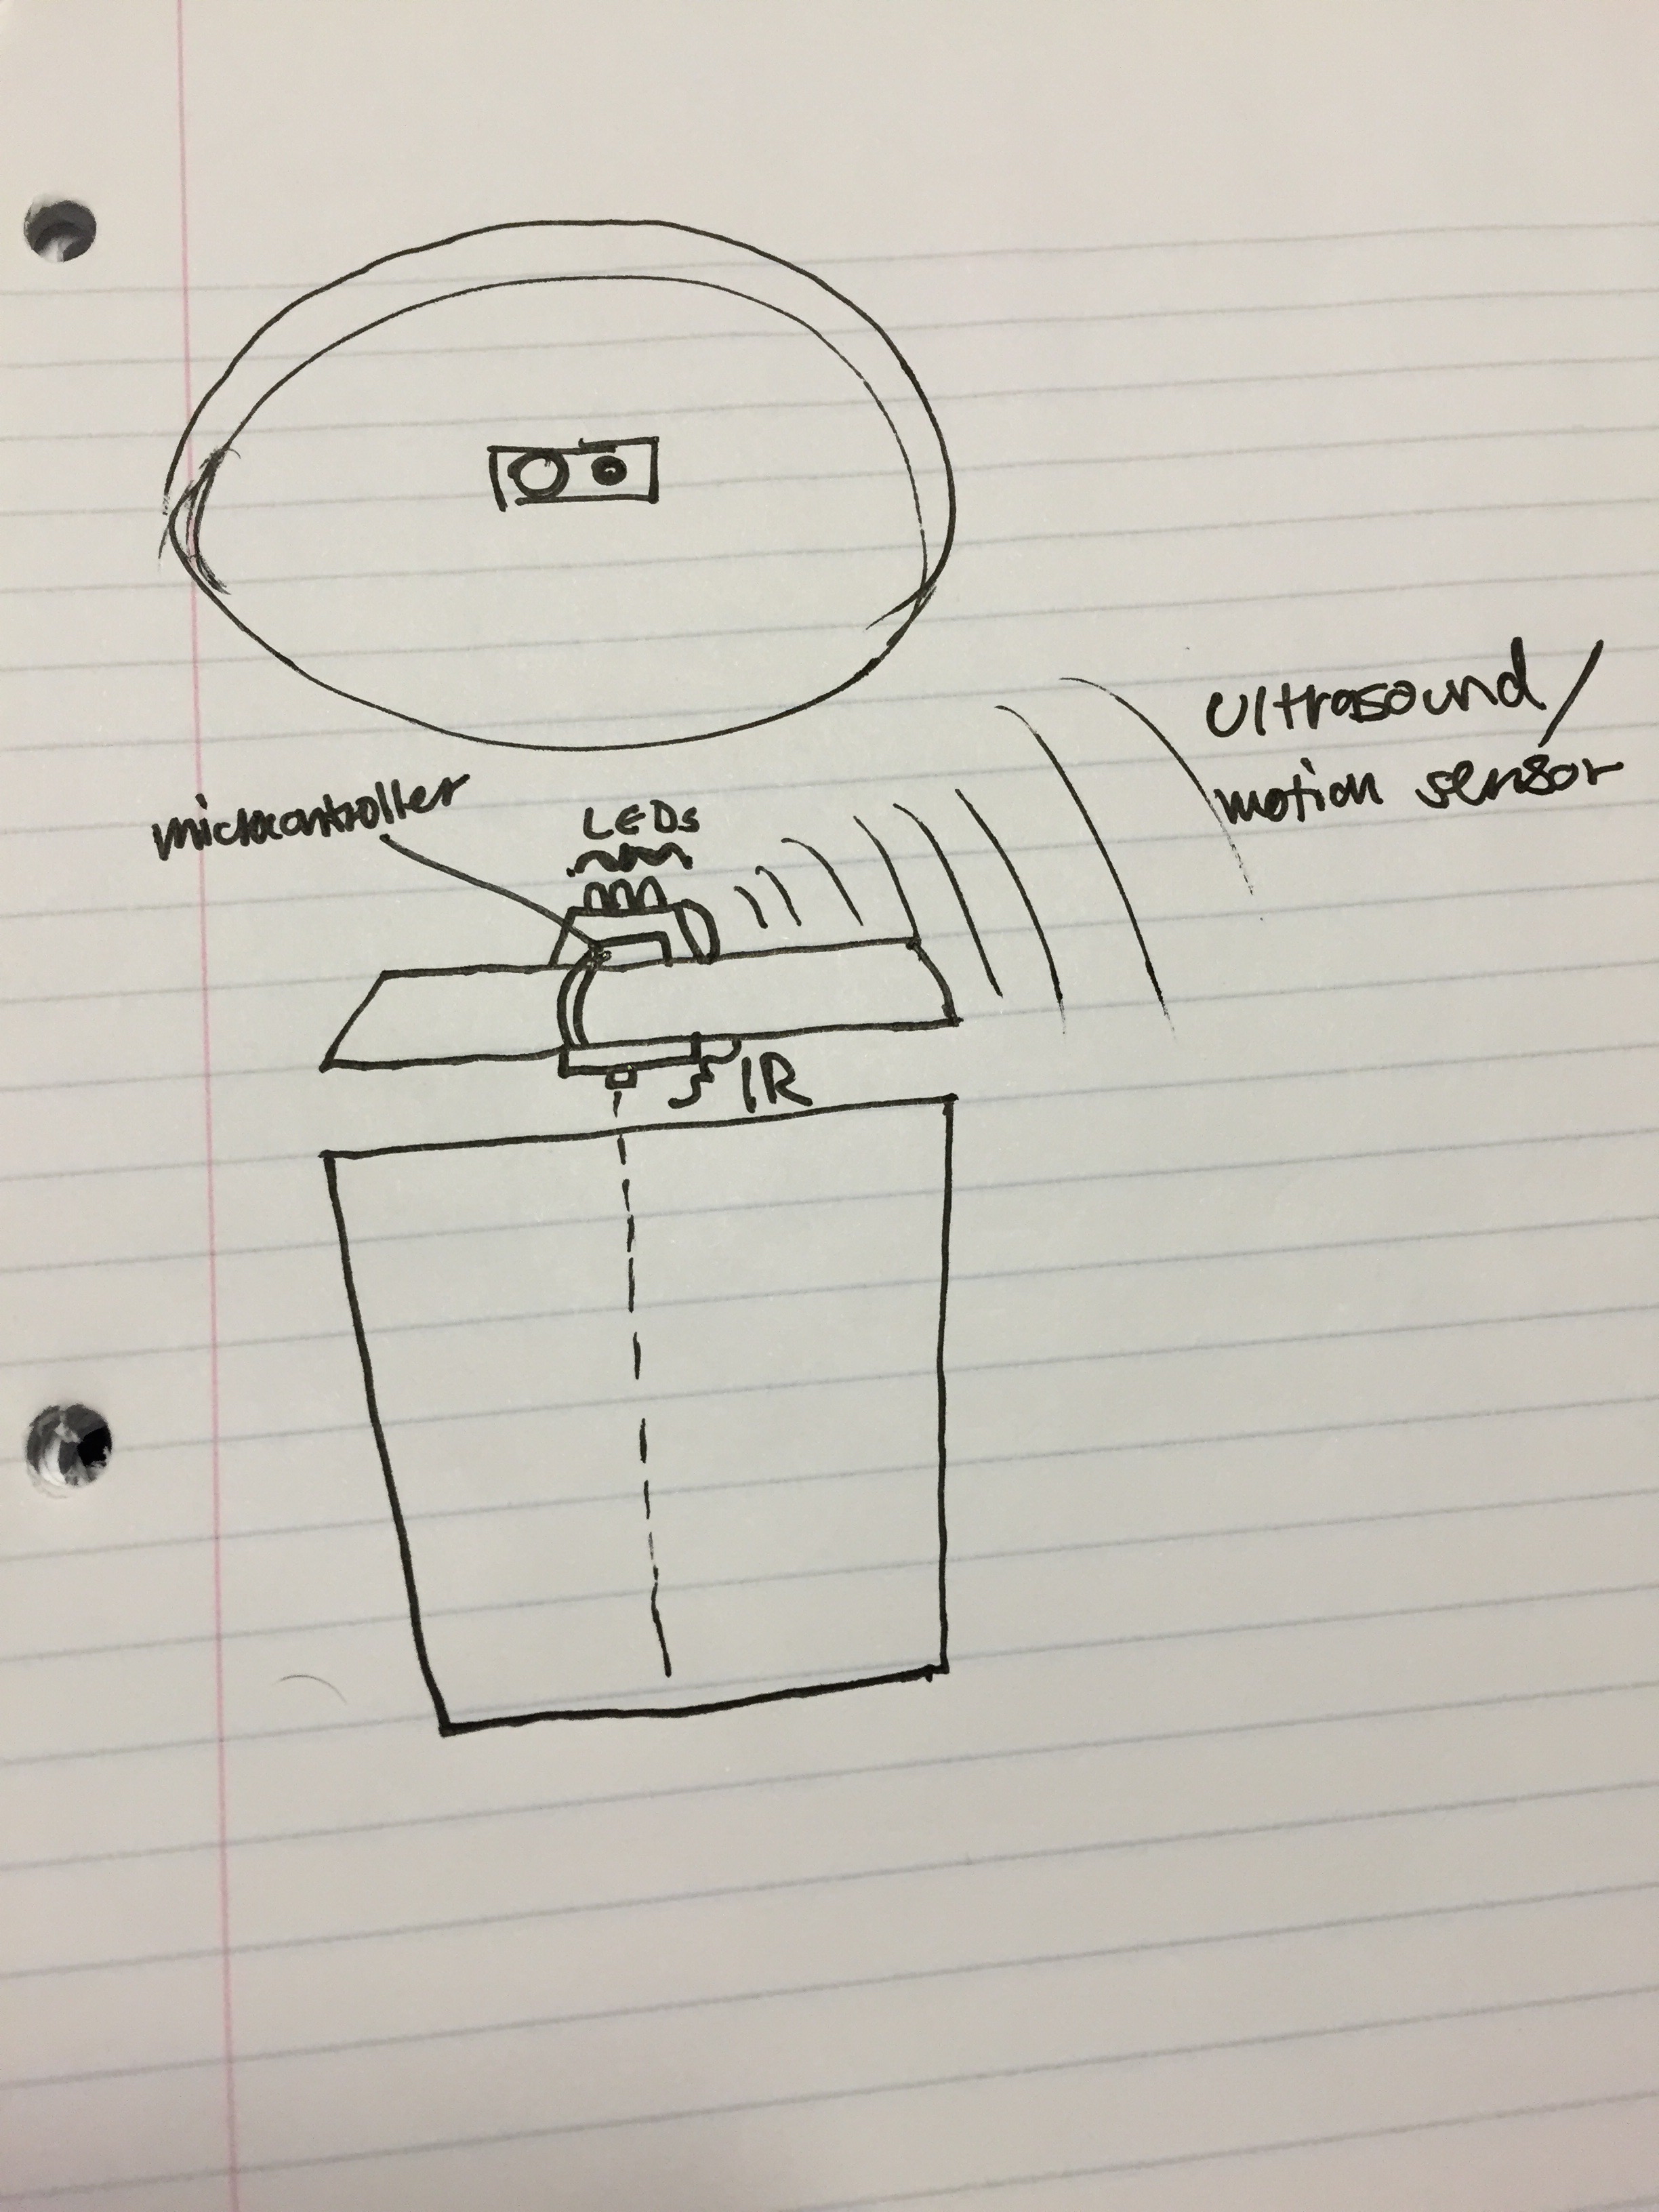 Ultrasound/
motion sensor
microcontroller
LEDs
IR